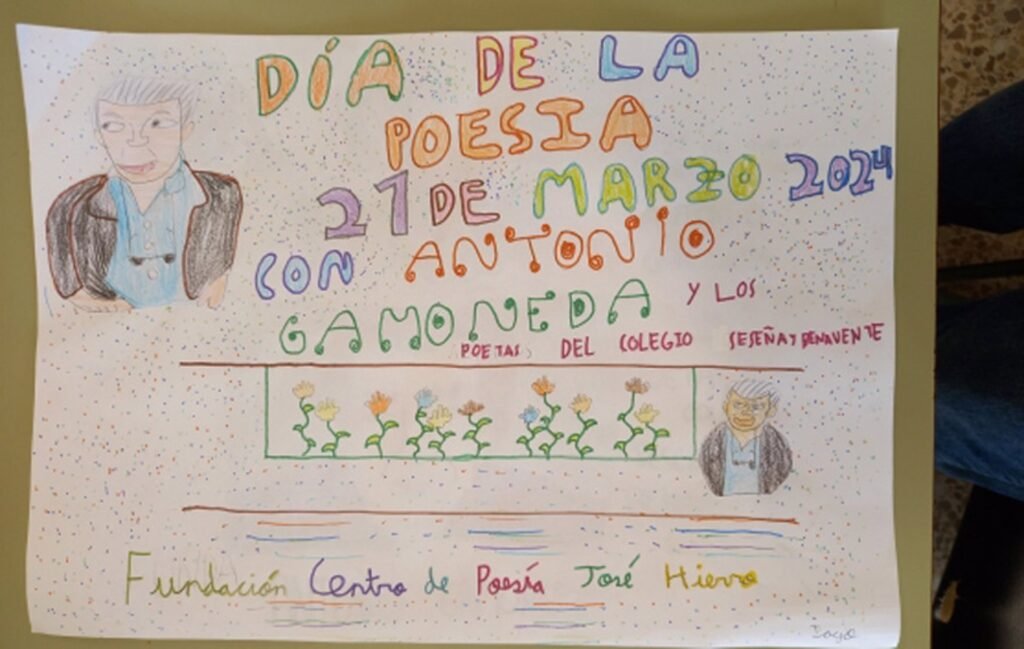 DÍA DE LA
POESIA
21 DE MARZO 2024
CON ANTONIO
GAMONEDA Y LOS
POETAS DEL COLEGIO SESEÑA Y BENAVENTE
Fundación Centro de Poesía José Hierro